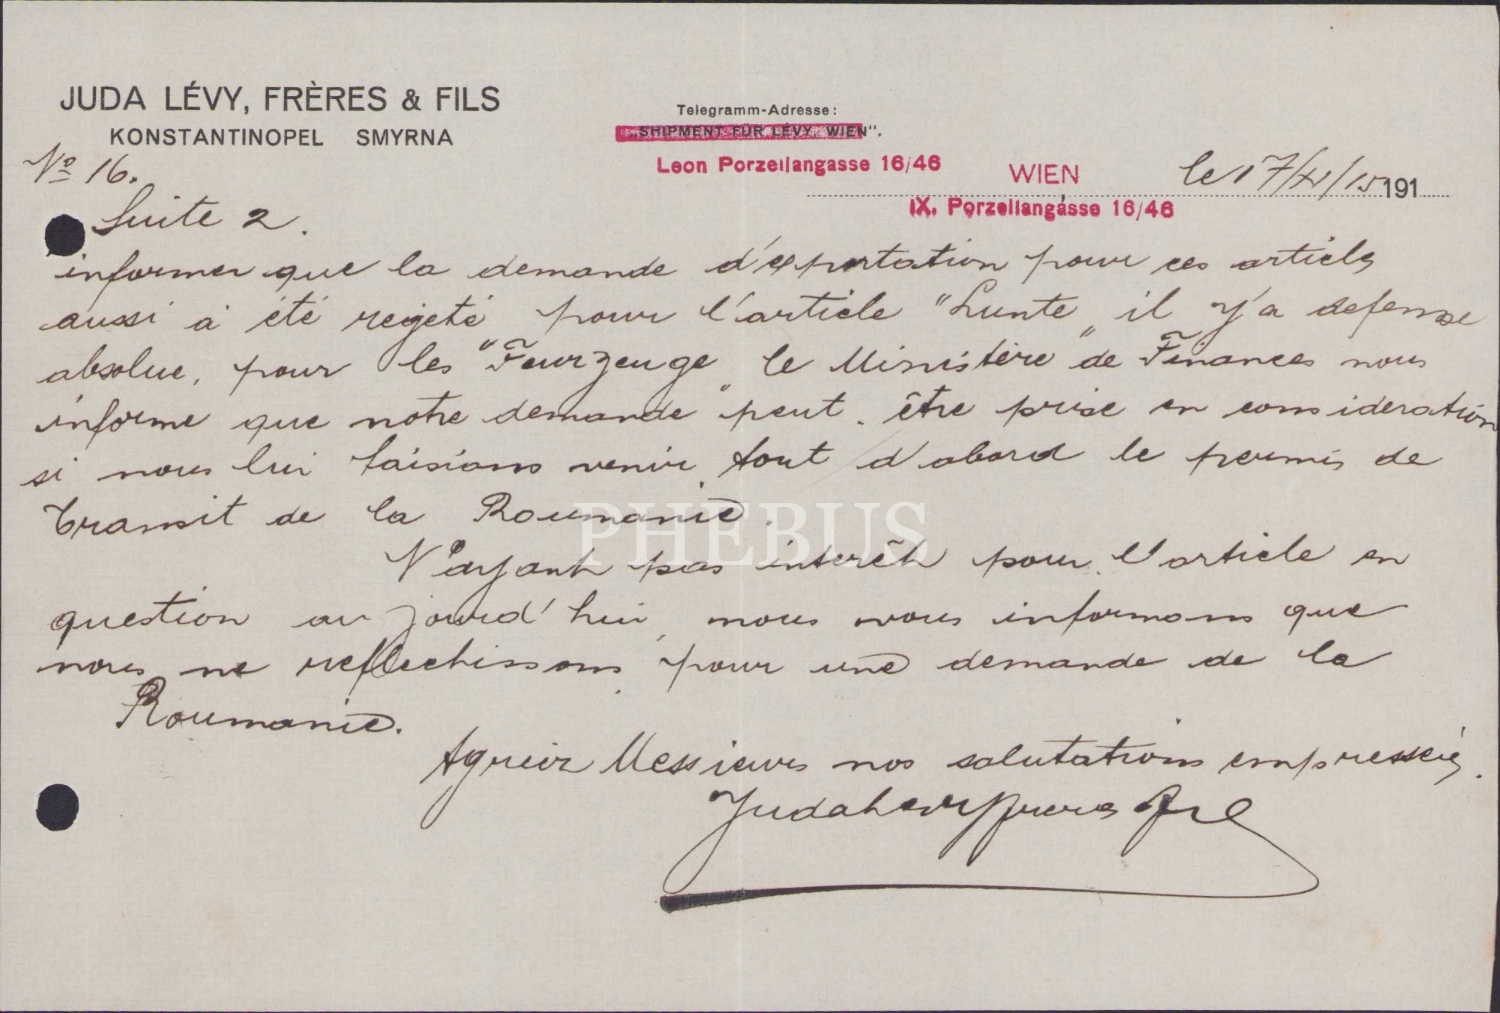 JUDA LÉVY, FRÈRES & FILS
KONSTANTINOPEL SMYRNA
Telegramm-Adresse:
„SHIPMENT FÜR LÉVY, WIEN".
Leon Porzellangasse 16/46
WIEN le 17/XI/15 191
IX. Porzellangasse 16/46
No 16.
Suite 2.
informer que la demande d'exportation pour ces articles
aussi à été rejeté pour l'article "Lunte" il y'a defense
absolue, pour les "Feurzeuge" le Ministère de Finances nous
informe que notre demande peut être prise en consideration
si nous lui faisions venir tout d'abord le permis de
transit de la Roumanie.
N'ayant pas interêt pour l'article en
question aujourd'hui, nous vous informons que
nous ne reflechissons pour une demande de la
Roumanie.
Agreez Messieurs nos salutations empresseés.
Juda Levy freres
PHEBUS